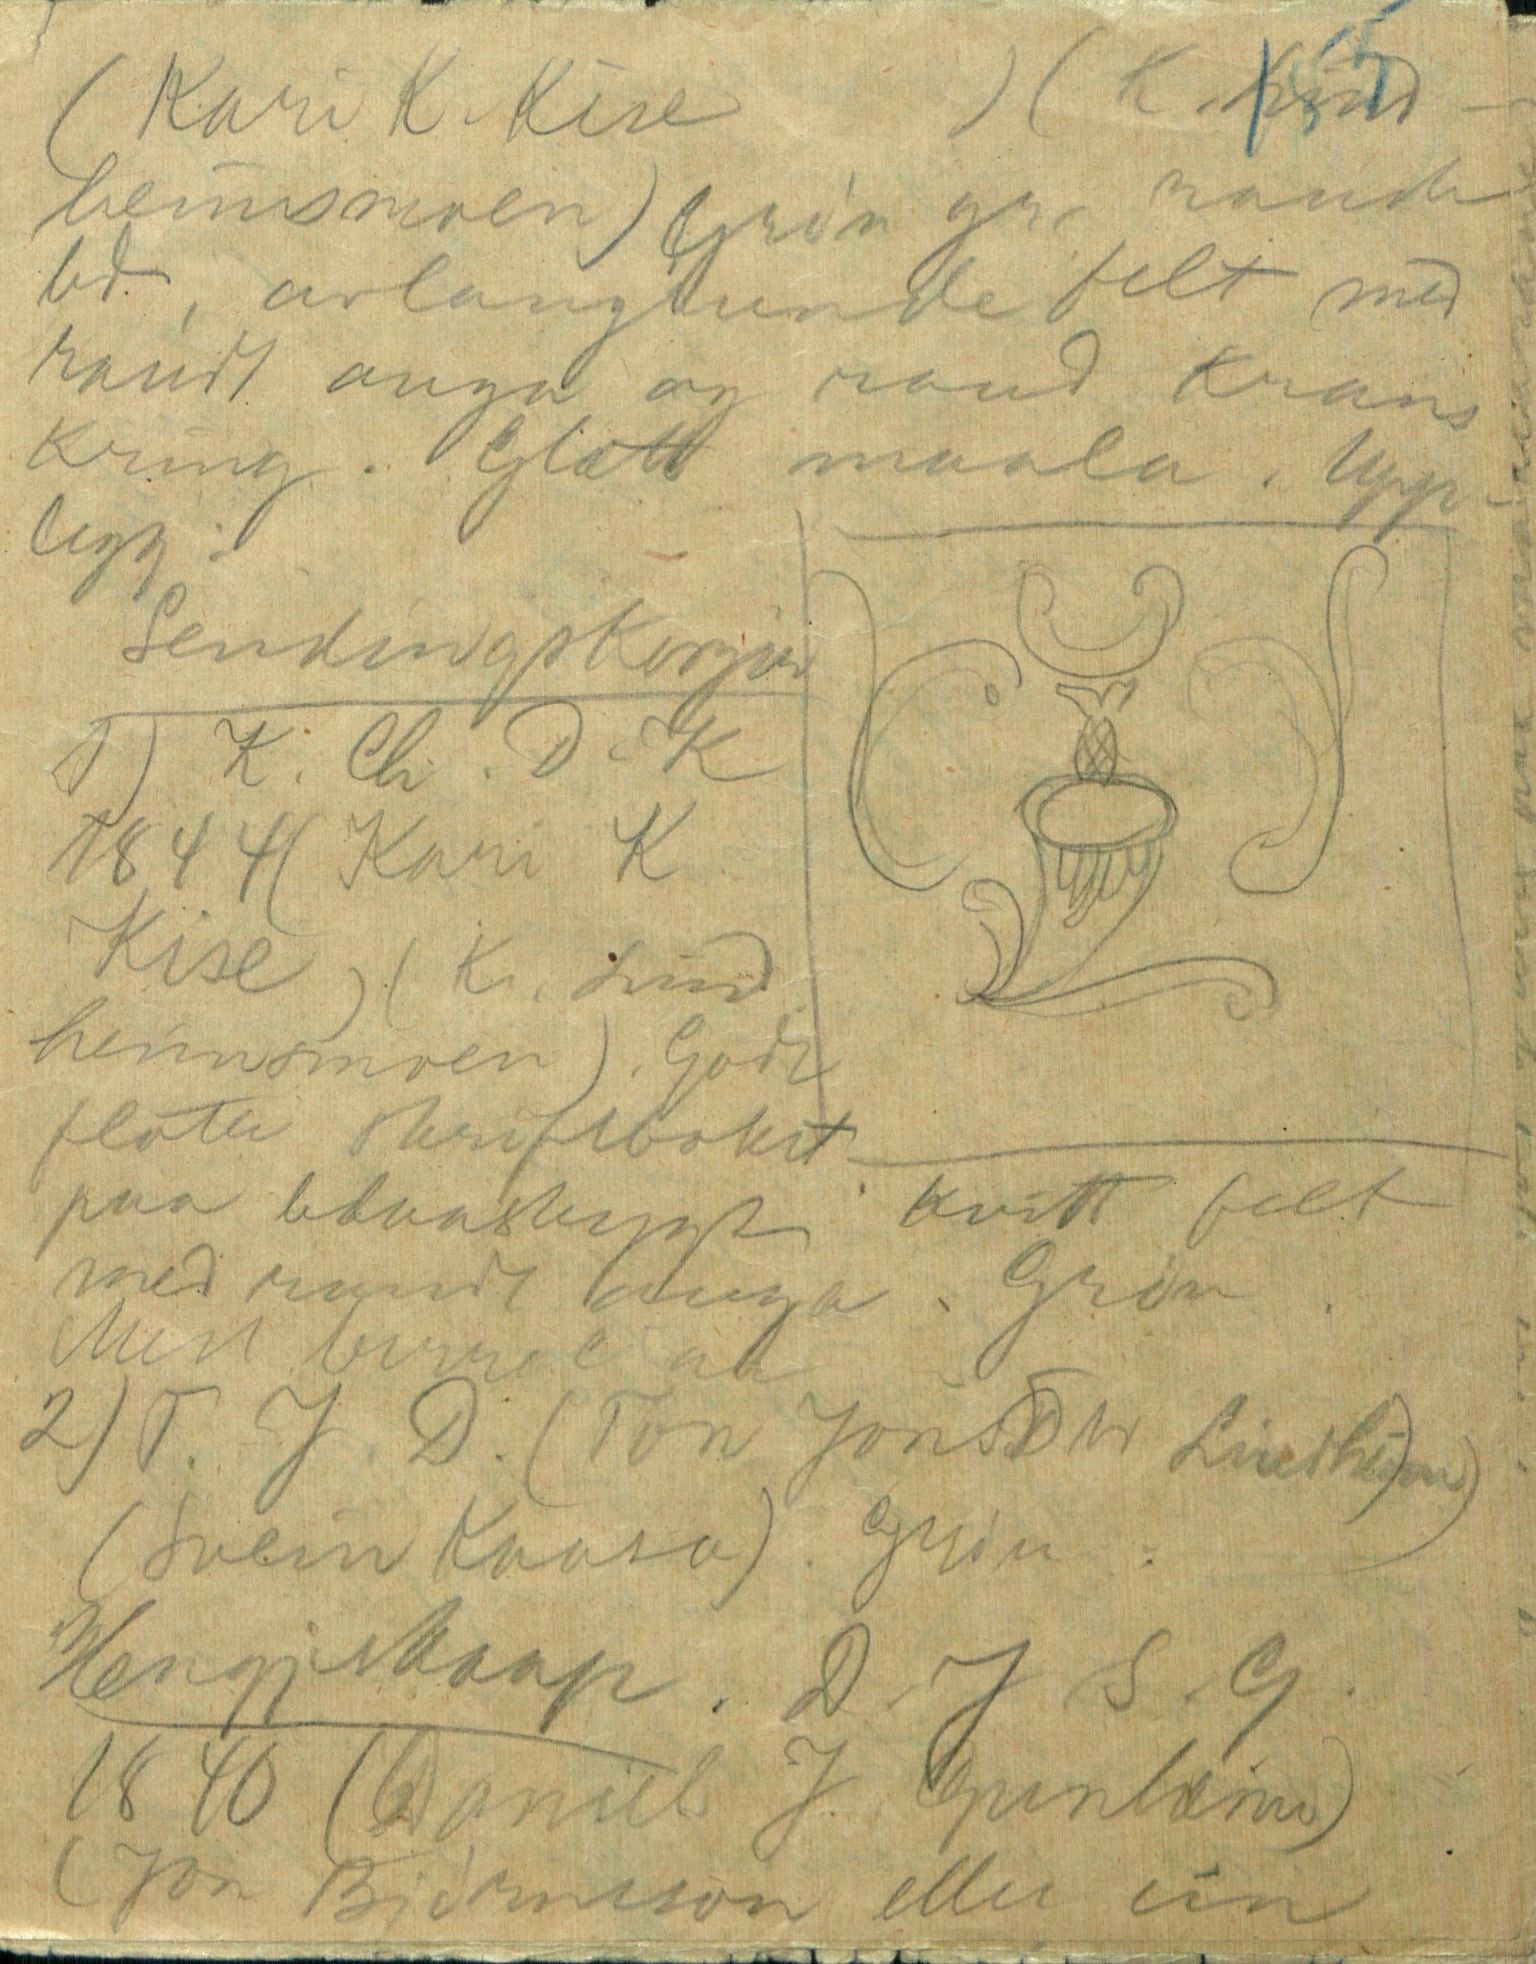 155
(Kari K. Kise ) (K. Lind-
heimsmoen) Grön gr, raude
bd, avlangrunde felt med
raudt auga og raud krans
kring. Glatt maala. Upp-
legg:
Sendingskorgjer
1) K. Ch. D. K
1844 (Kari K
Kise) (K. Lind
heimsmoen). Godt
flöta skriftbokst
paa blaaskuggt kvitt felt
med raudt auga. Grön.
Mest
2) T. J. D. (Ton Jons D tr Lindheim)
(Svein Kaasa). Grön.
Hengjeskaap. D. J S. G.
1840 (Daniel J. Gunleims)
(Jon Björnsson eller ein